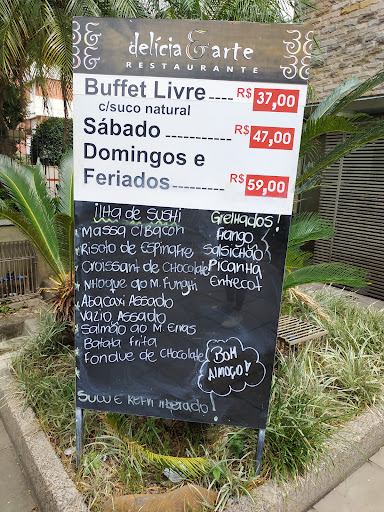 delícia & arte
RESTAURANTE
Buffet Livre R$ 37,00
c/suco natural
Sábado R$ 47,00
Domingos e
Feriados R$ 59,00
ilha de Sushi
Massa c/Bacon
Risoto de Espinafre
Croissant de Chocolate
Nhoque ao M. Funghi
Abacaxi Assado
Vazio Assado
Salmão ao M. Ervas
Batata frita
Fondue de Chocolate
Grelhados!
Frango
Salsichão
Picanha
Entrecot
Bom Almoço!
Suco e Refri liberado!